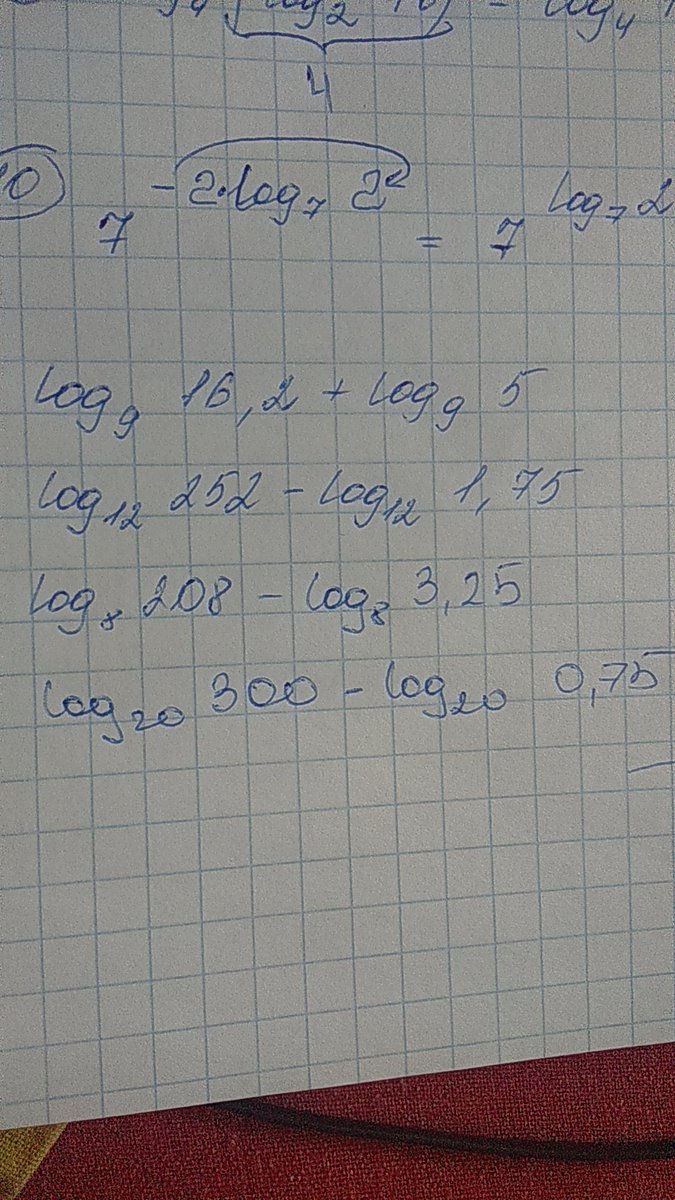 log₂ 16) = log₄
4
10 7^(-2·log₇ 2²) = 7^(log₇ 2
log₉ 16,2 + log₉ 5
log₁₂ 252 - log₁₂ 1,75
log₈ 208 - log₈ 3,25
log₂₀ 300 - log₂₀ 0,75